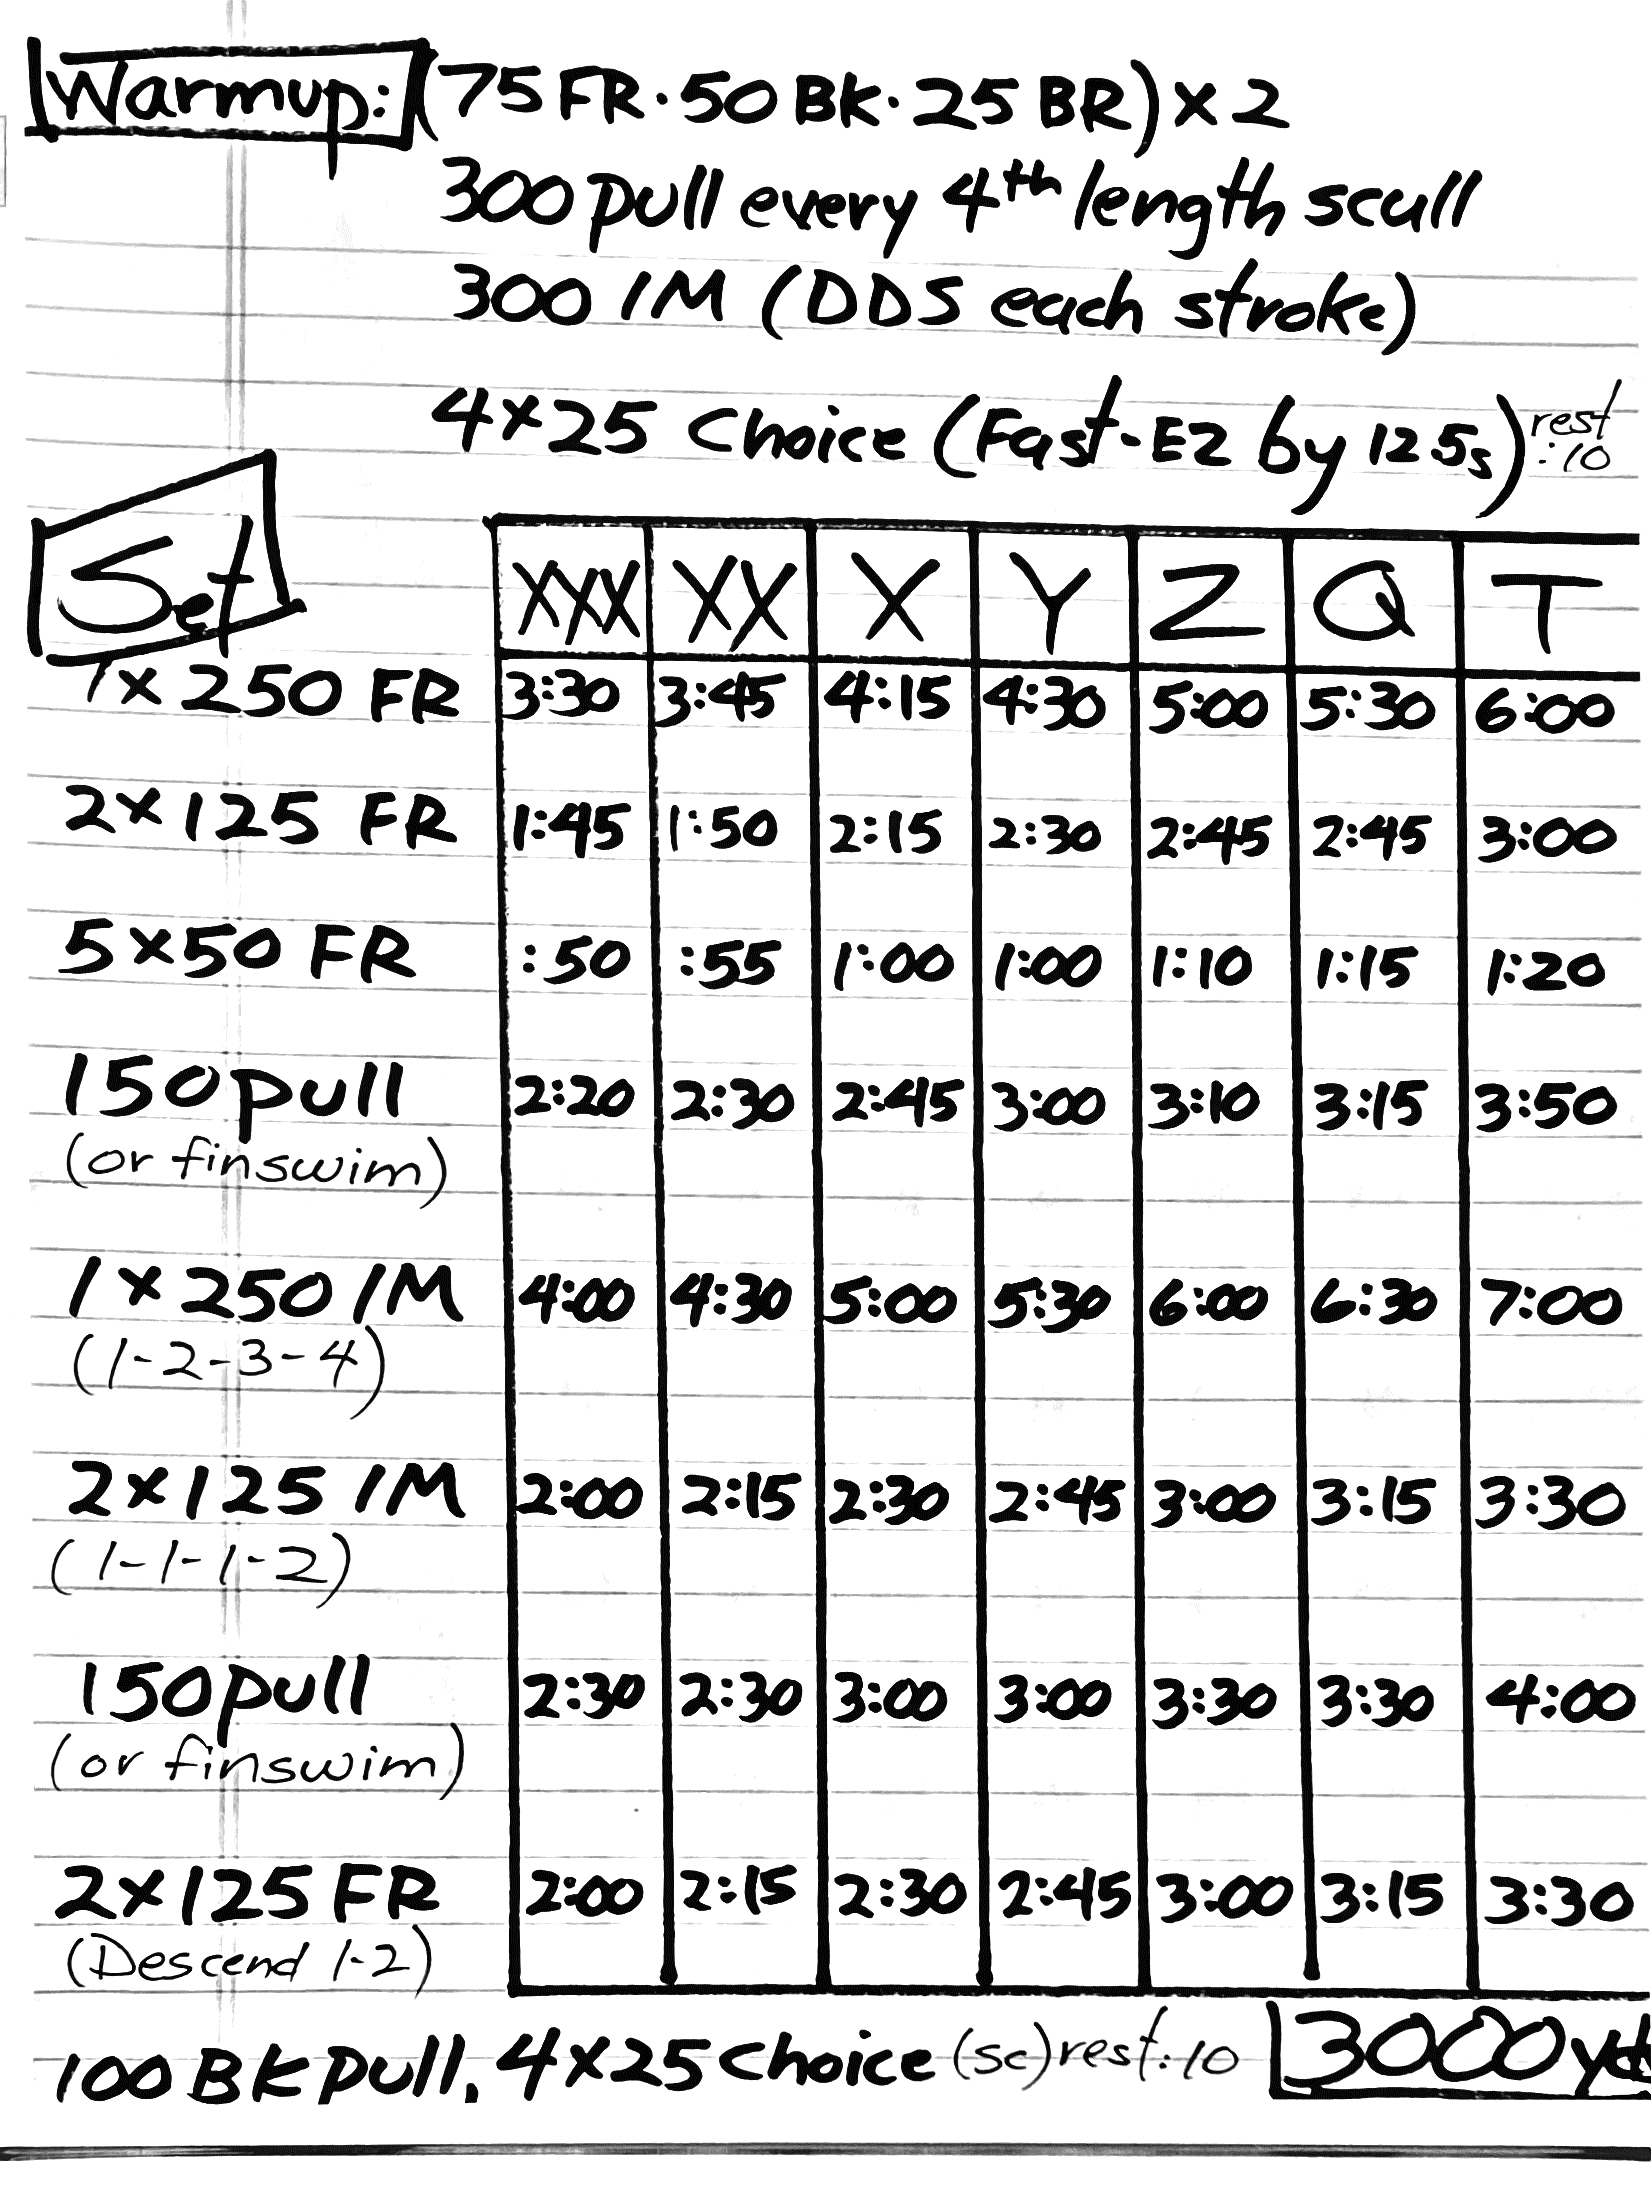 Warmup: (75 FR · 50 BK · 25 BR) x 2
300 pull every 4th length scull
300 IM (DDS each stroke)
4x25 Choice (Fast-EZ by 12.5s) rest :10
Set
XXX XX X Y Z Q T
1x 250 FR 3:30 3:45 4:15 4:30 5:00 5:30 6:00
2x125 FR 1:45 1:50 2:15 2:30 2:45 2:45 3:00
5x50 FR :50 :55 1:00 1:00 1:10 1:15 1:20
150 pull 2:20 2:30 2:45 3:00 3:10 3:15 3:50
(or finswim)
1x250 IM 4:00 4:30 5:00 5:30 6:00 6:30 7:00
(1-2-3-4)
2x125 IM 2:00 2:15 2:30 2:45 3:00 3:15 3:30
(1-1-1-2)
150 pull 2:30 2:30 3:00 3:00 3:30 3:30 4:00
(or finswim)
2x125 FR 2:00 2:15 2:30 2:45 3:00 3:15 3:30
(Descend 1-2)
100 BK pull. 4x25 Choice (sc) rest :10 3000 yds